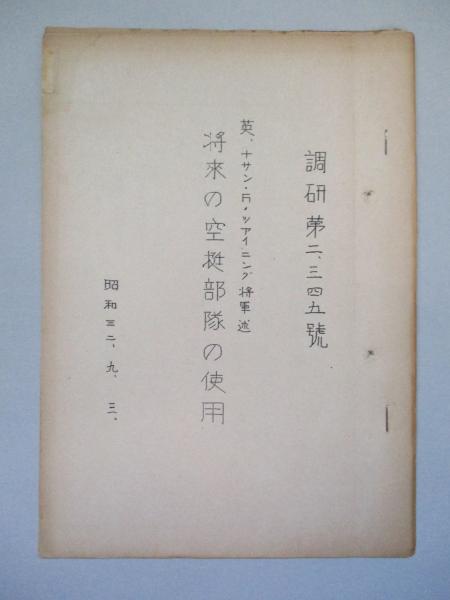 調研第二、三四五號
英、ナサン・F・ツアイニング将軍述
将來の空挺部隊の使用
昭和三二、九、三、